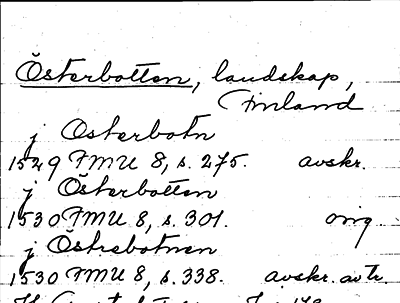 Österbotten, landskap,
Finland
j Osterbotn
1529 FMU 8, s. 275. avskr.
j Österbotten
1530 FMU 8, s. 301. orig
j Östrebotnen
1530 FMU 8, s. 338. avskr. av tr.